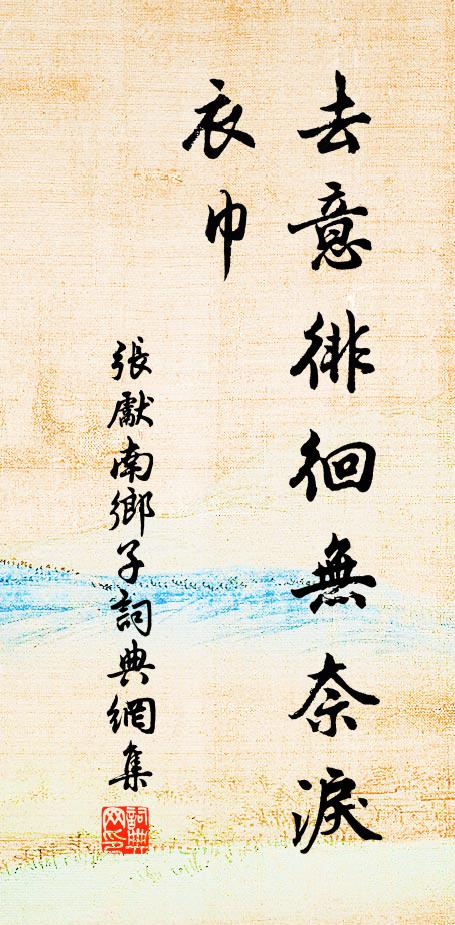 去意徘徊無奈淚
衣巾
張獻南鄉子詞典網集
詞典
网